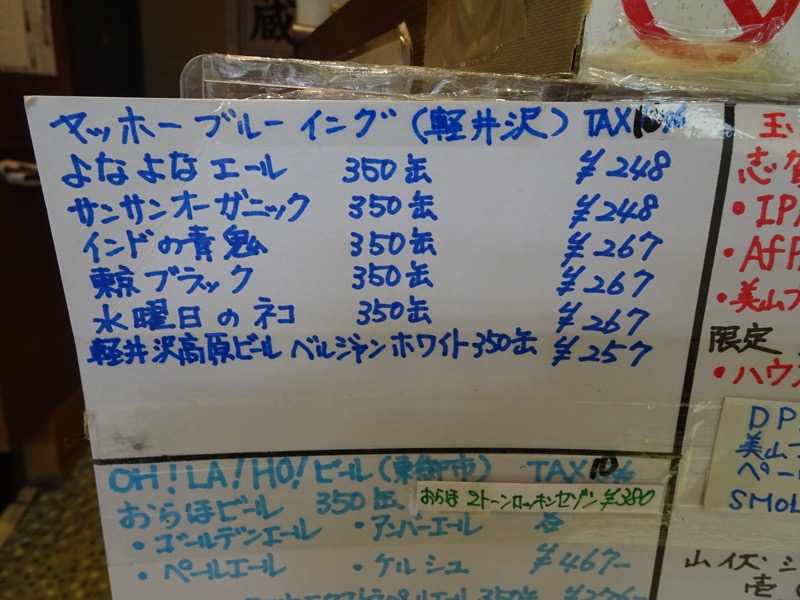 蔵
ヤッホーブルーイング(軽井沢) TAX10%
よなよなエール 350缶 ¥248
サンサンオーガニック 350缶 ¥248
インドの青鬼 350缶 ¥267
東京ブラック 350缶 ¥267
水曜日のネコ 350缶 ¥267
軽井沢高原ビール ベルジャンホワイト350缶 ¥257
OH!LA!HO!ビール(東御市) TAX10%
おらほビール 350缶
おらほ 2トーンロッキンセゾン ¥380
・ゴールデンエール ・アンバーエール 各
・ペールエール ・ケルシュ ¥467-
玉
志賀
・IPA
・AfP
・美山
限定
・ハウス
DP
美山
ペー
SMOL
山伏・シ
壱